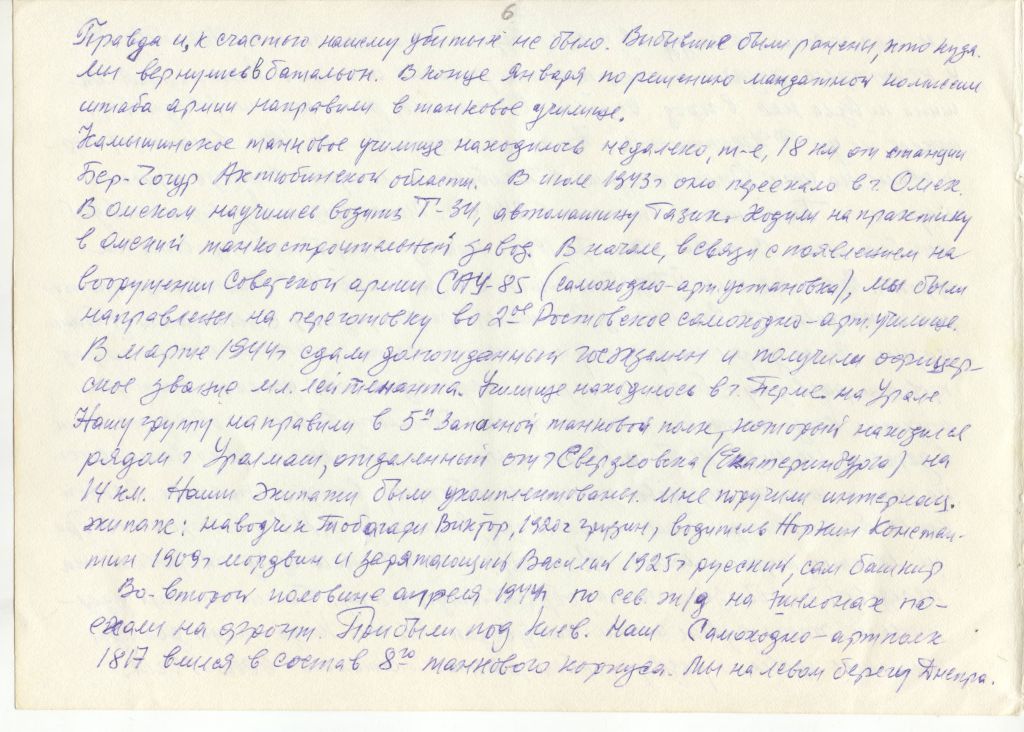 6
Правда и, к счастью нашему убитых не было. Выбывшие были ранены, кто куда.
Мы вернулись в батальон. В конце января по решению мандатной комиссии
штаба армии направили в танковое училище.
Камышинское танковое училище находилось недалеко, т-е, 18 км от станции
Бер-Чогур Актюбинской области. В июле 1943г оно переехало в г. Омск.
В омском научились водить Т-34, автомашину Газик. Ходили на практику
в омский танкостроительный завод. В начале, в связи с появлением на
вооружении Советской армии САУ-85 (самоходно-арт.установка), мы были
направлены на переготовку во 2ое Ростовское самоходно-арт. училище.
В марте 1944г сдали долгожданный госэкзамен и получили офицер-
ское звание мл. лейтенанта. Училище находилось в г. Перме на Урале
Нашу группу направили в 5й Запасной танковой полк, который находился
рядом г Уралмаш, отдаленный от г Свердловска (Екатеринбурга) на
14 км. Наши экипажи были укомплектованы. Мне поручили интернац.
экипаж: наводчик Виктор, 1920г грузин, водитель Норкин Констан-
тин 1909г мордвин и заряжающий Василий 1925г русский, сам башкир
Во-второй половине апреля 1944г по сев. ж/д на эшелонах по-
ехали на фронт. Прибыли под Киев. Наш Самоходно-артполк
1817 влился в состав 8го танкового корпуса. Мы на левом берегу Днепра.